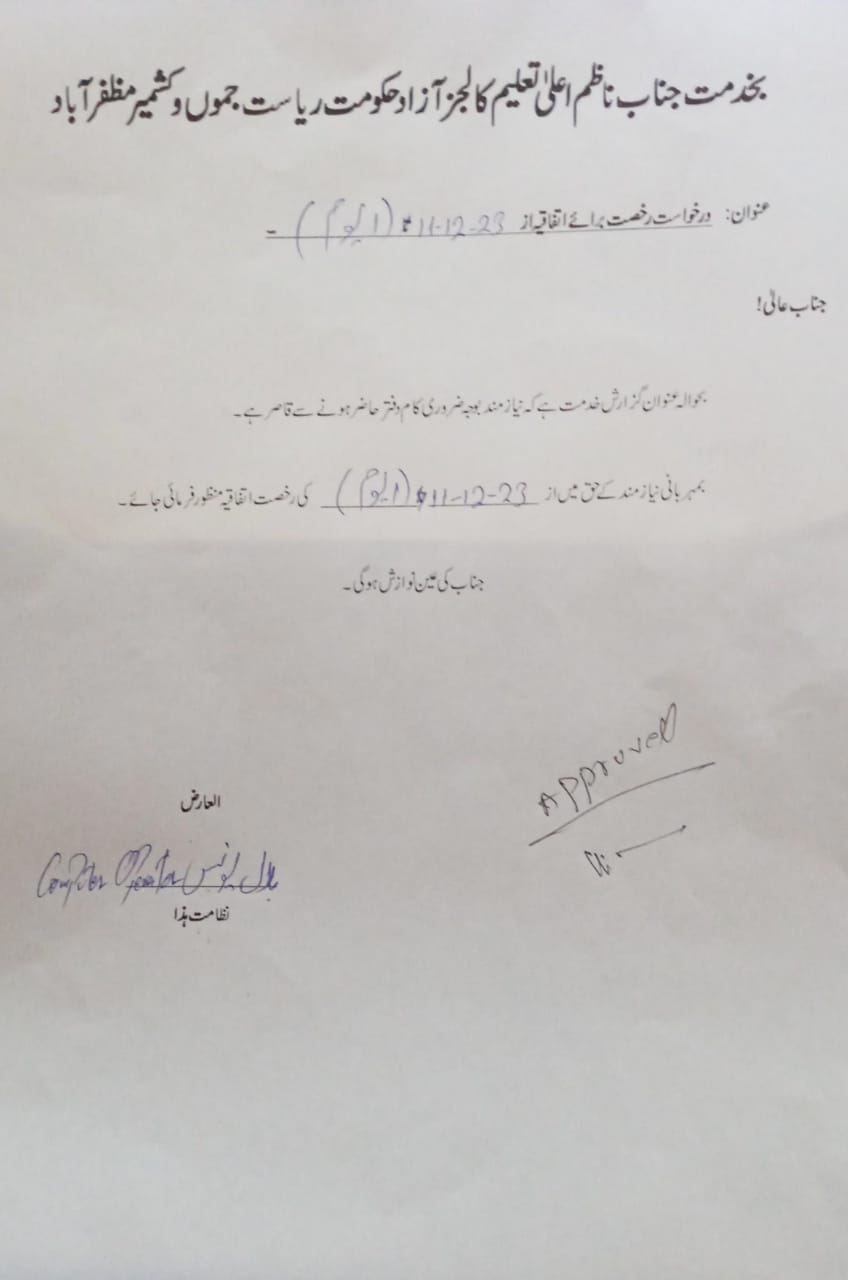 بخدمت جناب ناظم اعلیٰ تعلیم کالجز آزاد حکومت ریاست جموں و کشمیر مظفر آباد
عنوان: درخواست رخصت برائے اتفاقیہ از 11-12-23 (1 یوم) ۔
جناب عالی!
بحوالہ عنوان گزارش خدمت ہے کہ نیاز مند بوجہ ضروری کام دفتر حاضر ہونے سے قاصر ہے۔
بمہربانی نیاز مند کے حق میں از 11-12-23 (1 یوم) کی رخصت اتفاقیہ منظور فرمائی جائے۔
جناب کی عین نوازش ہوگی۔
Approved
العارض
بلال یونس Computer Operator
نظامت ہذا